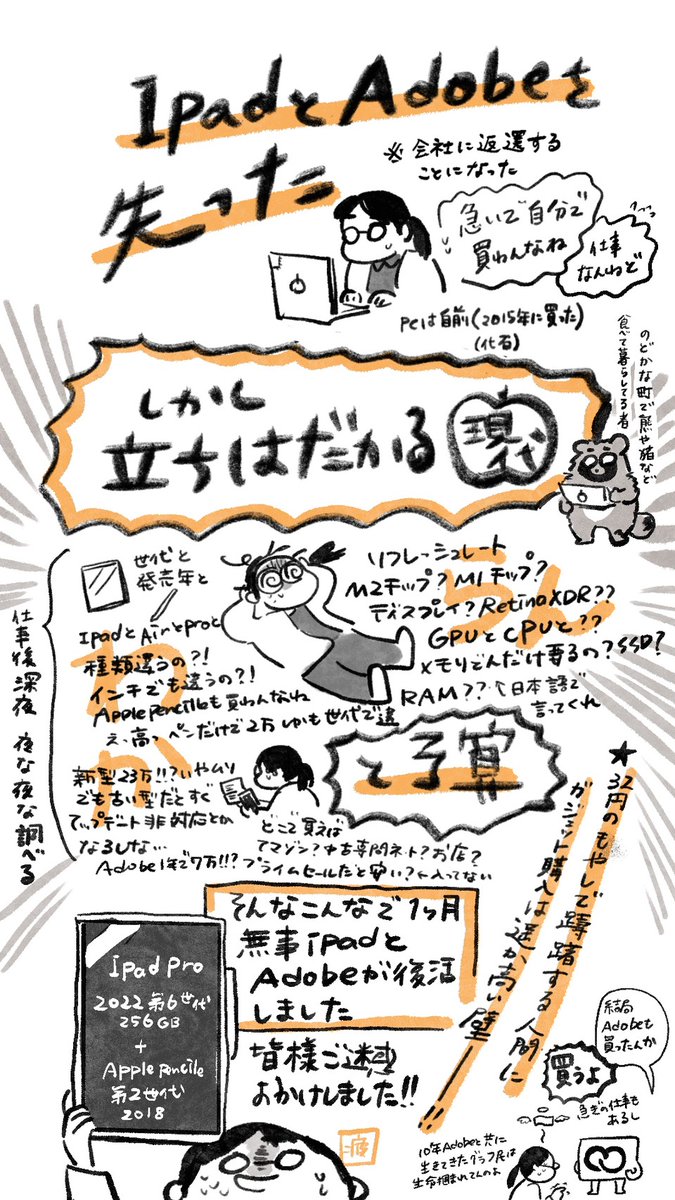 IpadとAdobeを
失った
※会社に返還する
ことになった
急いで自分で
買わんなね
仕事
なんねど
PCは自前(2015年に買った)
(化石)
のどかな町で熊や猪など
食べて暮らしてる者
しかし
立ちはだかる
現代
仕事後深夜 夜な夜な調べる
世代と
発売年と
IpadとAirとproと
種類違うの?!
インチでも違うの?!
Apple Pencileも買わんなね
え、高っ ペンだけで2万 しかも世代で違
リフレッシュレート
M2チップ? M1チップ?
ディスプレイ? Retina XDR??
GPUとCPUと??
メモリどんだけ要るの? SSD?
RAM?? ↑日本語で
言ってくれ
わからん
と予算
新型23万!!? いやムリ
でも古い型だとすぐ
アップデート非対応とか
なるしな…
Adobe1年で7万!!?
どこで買えば
アマゾン? 中古専門ネット? お店?
プライムセールだと安い? 入ってない
★32円のもやしで躊躇する人間に
ガジェット購入は遥か高い壁!!
そんなこんなで1ヶ月
無事ipadと
Adobeが復活
しました
皆様ご迷惑
おかけしました!!
Ipad Pro
2022 第6世代
256GB
+
Apple Pencile
第2世代
2018
疲
結局
Adobeも
買ったんか
買うよ
急ぎの仕事も
あるし
10年Adobeと共に
生きてきたグラフ民は
生命掴まれてんのよ